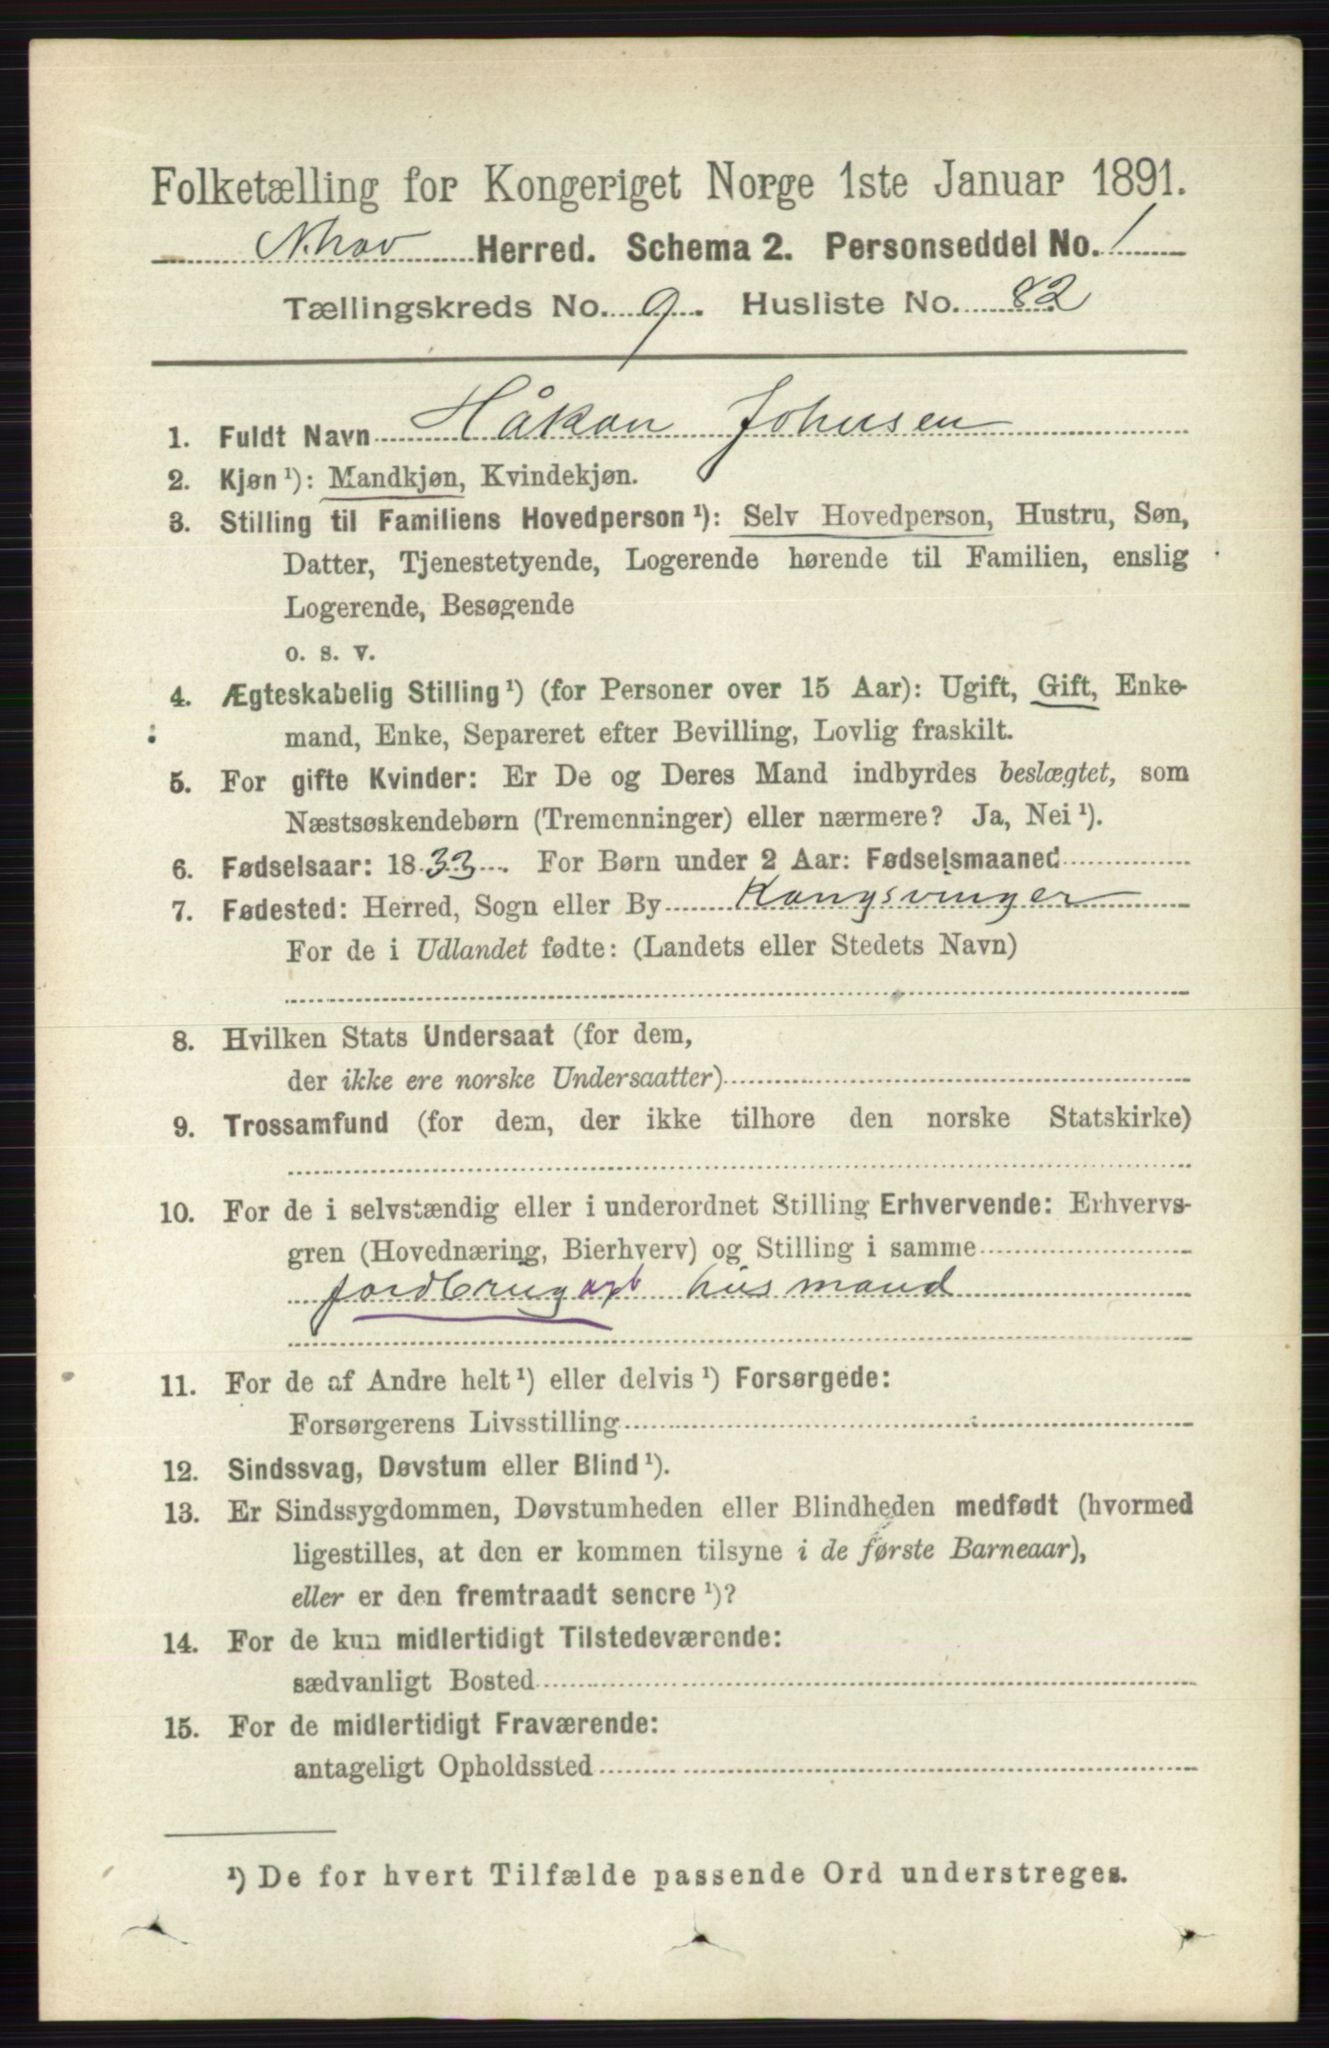 Folketælling for Kongeriget Norge 1ste Januar 1891.
Herred. Schema 2. Personseddel No. 1
Tællingskreds No. 9. Husliste No. 82
1. Fuldt Navn Håkon Johnsen
2. Kjøn ¹): Mandkjøn, Kvindekjøn.
3. Stilling til Familiens Hovedperson ¹): Selv Hovedperson, Hustru, Søn,
Datter, Tjenestetyende, Logerende hørende til Familien, enslig
Logerende, Besøgende
o. s. v.
4. Ægteskabelig Stilling ¹) (for Personer over 15 Aar): Ugift, Gift, Enke-
mand, Enke, Separeret efter Bevilling, Lovlig fraskilt.
5. For gifte Kvinder: Er De og Deres Mand indbyrdes beslægtet, som
Næstsøskendebørn (Tremenninger) eller nærmere? Ja, Nei ¹).
6. Fødselsaar: 1833. For Børn under 2 Aar: Fødselsmaaned
7. Fødested: Herred, Sogn eller By Kongsvinger
For de i Udlandet fødte: (Landets eller Stedets Navn)
8. Hvilken Stats Undersaat (for dem,
der ikke ere norske Undersaatter)
9. Trossamfund (for dem, der ikke tilhore den norske Statskirke)
10. For de i selvstændig eller i underordnet Stilling Erhvervende: Erhvervs-
gren (Hovednæring, Bierhverv) og Stilling i samme
jordbrugarb husmand
11. For de af Andre helt ¹) eller delvis ¹) Forsørgede:
Forsørgerens Livsstilling
12. Sindssvag, Døvstum eller Blind ¹).
13. Er Sindssygdommen, Døvstumheden eller Blindheden medfødt (hvormed
ligestilles, at den er kommen tilsyne i de første Barneaar),
eller er den fremtraadt senere ¹)?
14. For de kun midlertidigt Tilstedeværende:
sædvanligt Bosted
15. For de midlertidigt Fraværende:
antageligt Opholdssted
¹) De for hvert Tilfælde passende Ord understreges.